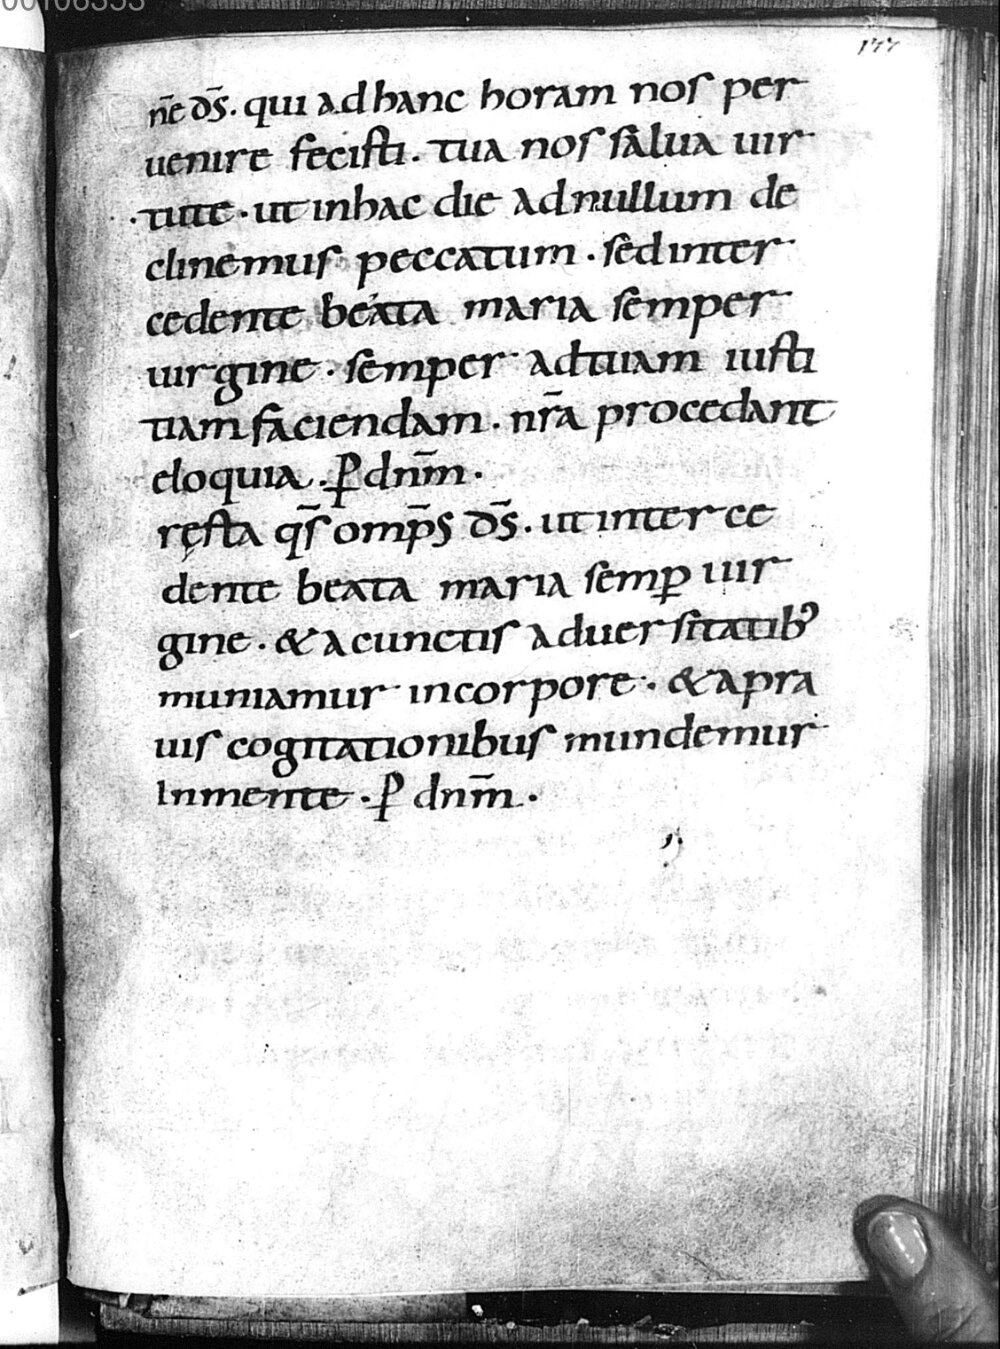 00106353
177
n̄e ds̄. qui ad hanc horam nos per
uenire fecisti. tua nos salua uir
tute. ut inhac die ad nullum de
clinemus peccatum. sed inter
cedente beata maria semper
uirgine. semper ad tuam iusti
tiam faciendam. nr̄a procedant
eloquia. ꝑ dnm̄.
ręsta qs̄ omp̄s ds̄. ut interce
dente beata maria semꝑ uir
gine. & a cunctis aduersitatib᾽
muniamur incorpore. & apra
uis cogitationibus mundemur
Inmente. ꝑ dnm̄.